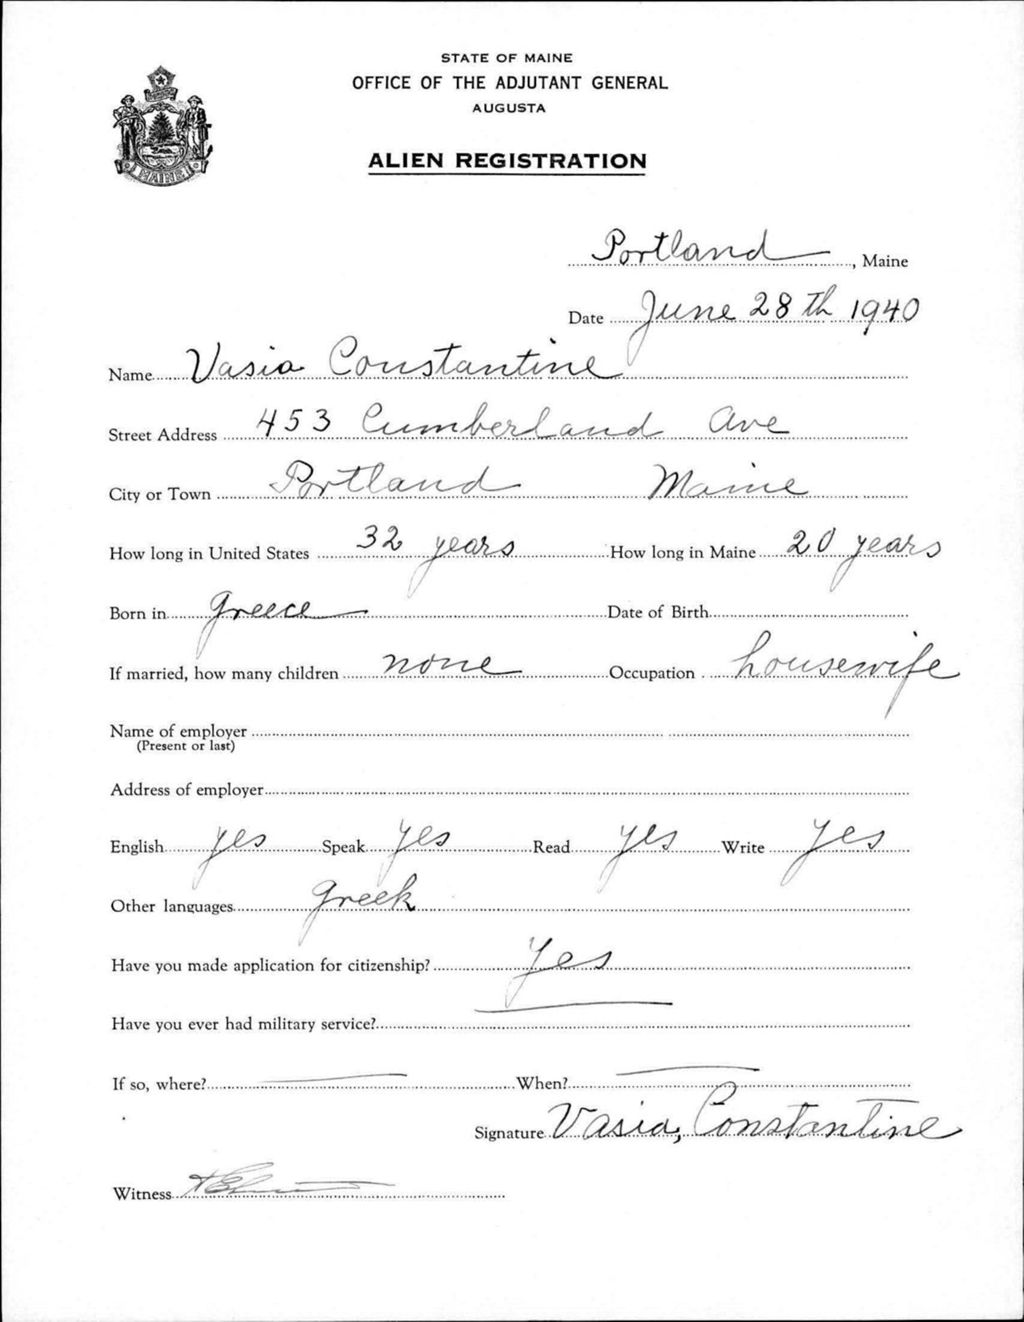 STATE OF MAINE
OFFICE OF THE ADJUTANT GENERAL
AUGUSTA
ALIEN REGISTRATION
MAINE
Portland, Maine
Date June 28th 1940
Name Vasia Constantine
Street Address 453 Cumberland Ave
City or Town Portland Maine
How long in United States 32 years How long in Maine 20 years
Born in Greece Date of Birth
If married, how many children none Occupation housewife
Name of employer
(Present or last)
Address of employer
English yes Speak yes Read yes Write yes
Other languages Greek
Have you made application for citizenship? Yes
Have you ever had military service?
If so, where? When?
Signature Vasia, Constantine
Witness